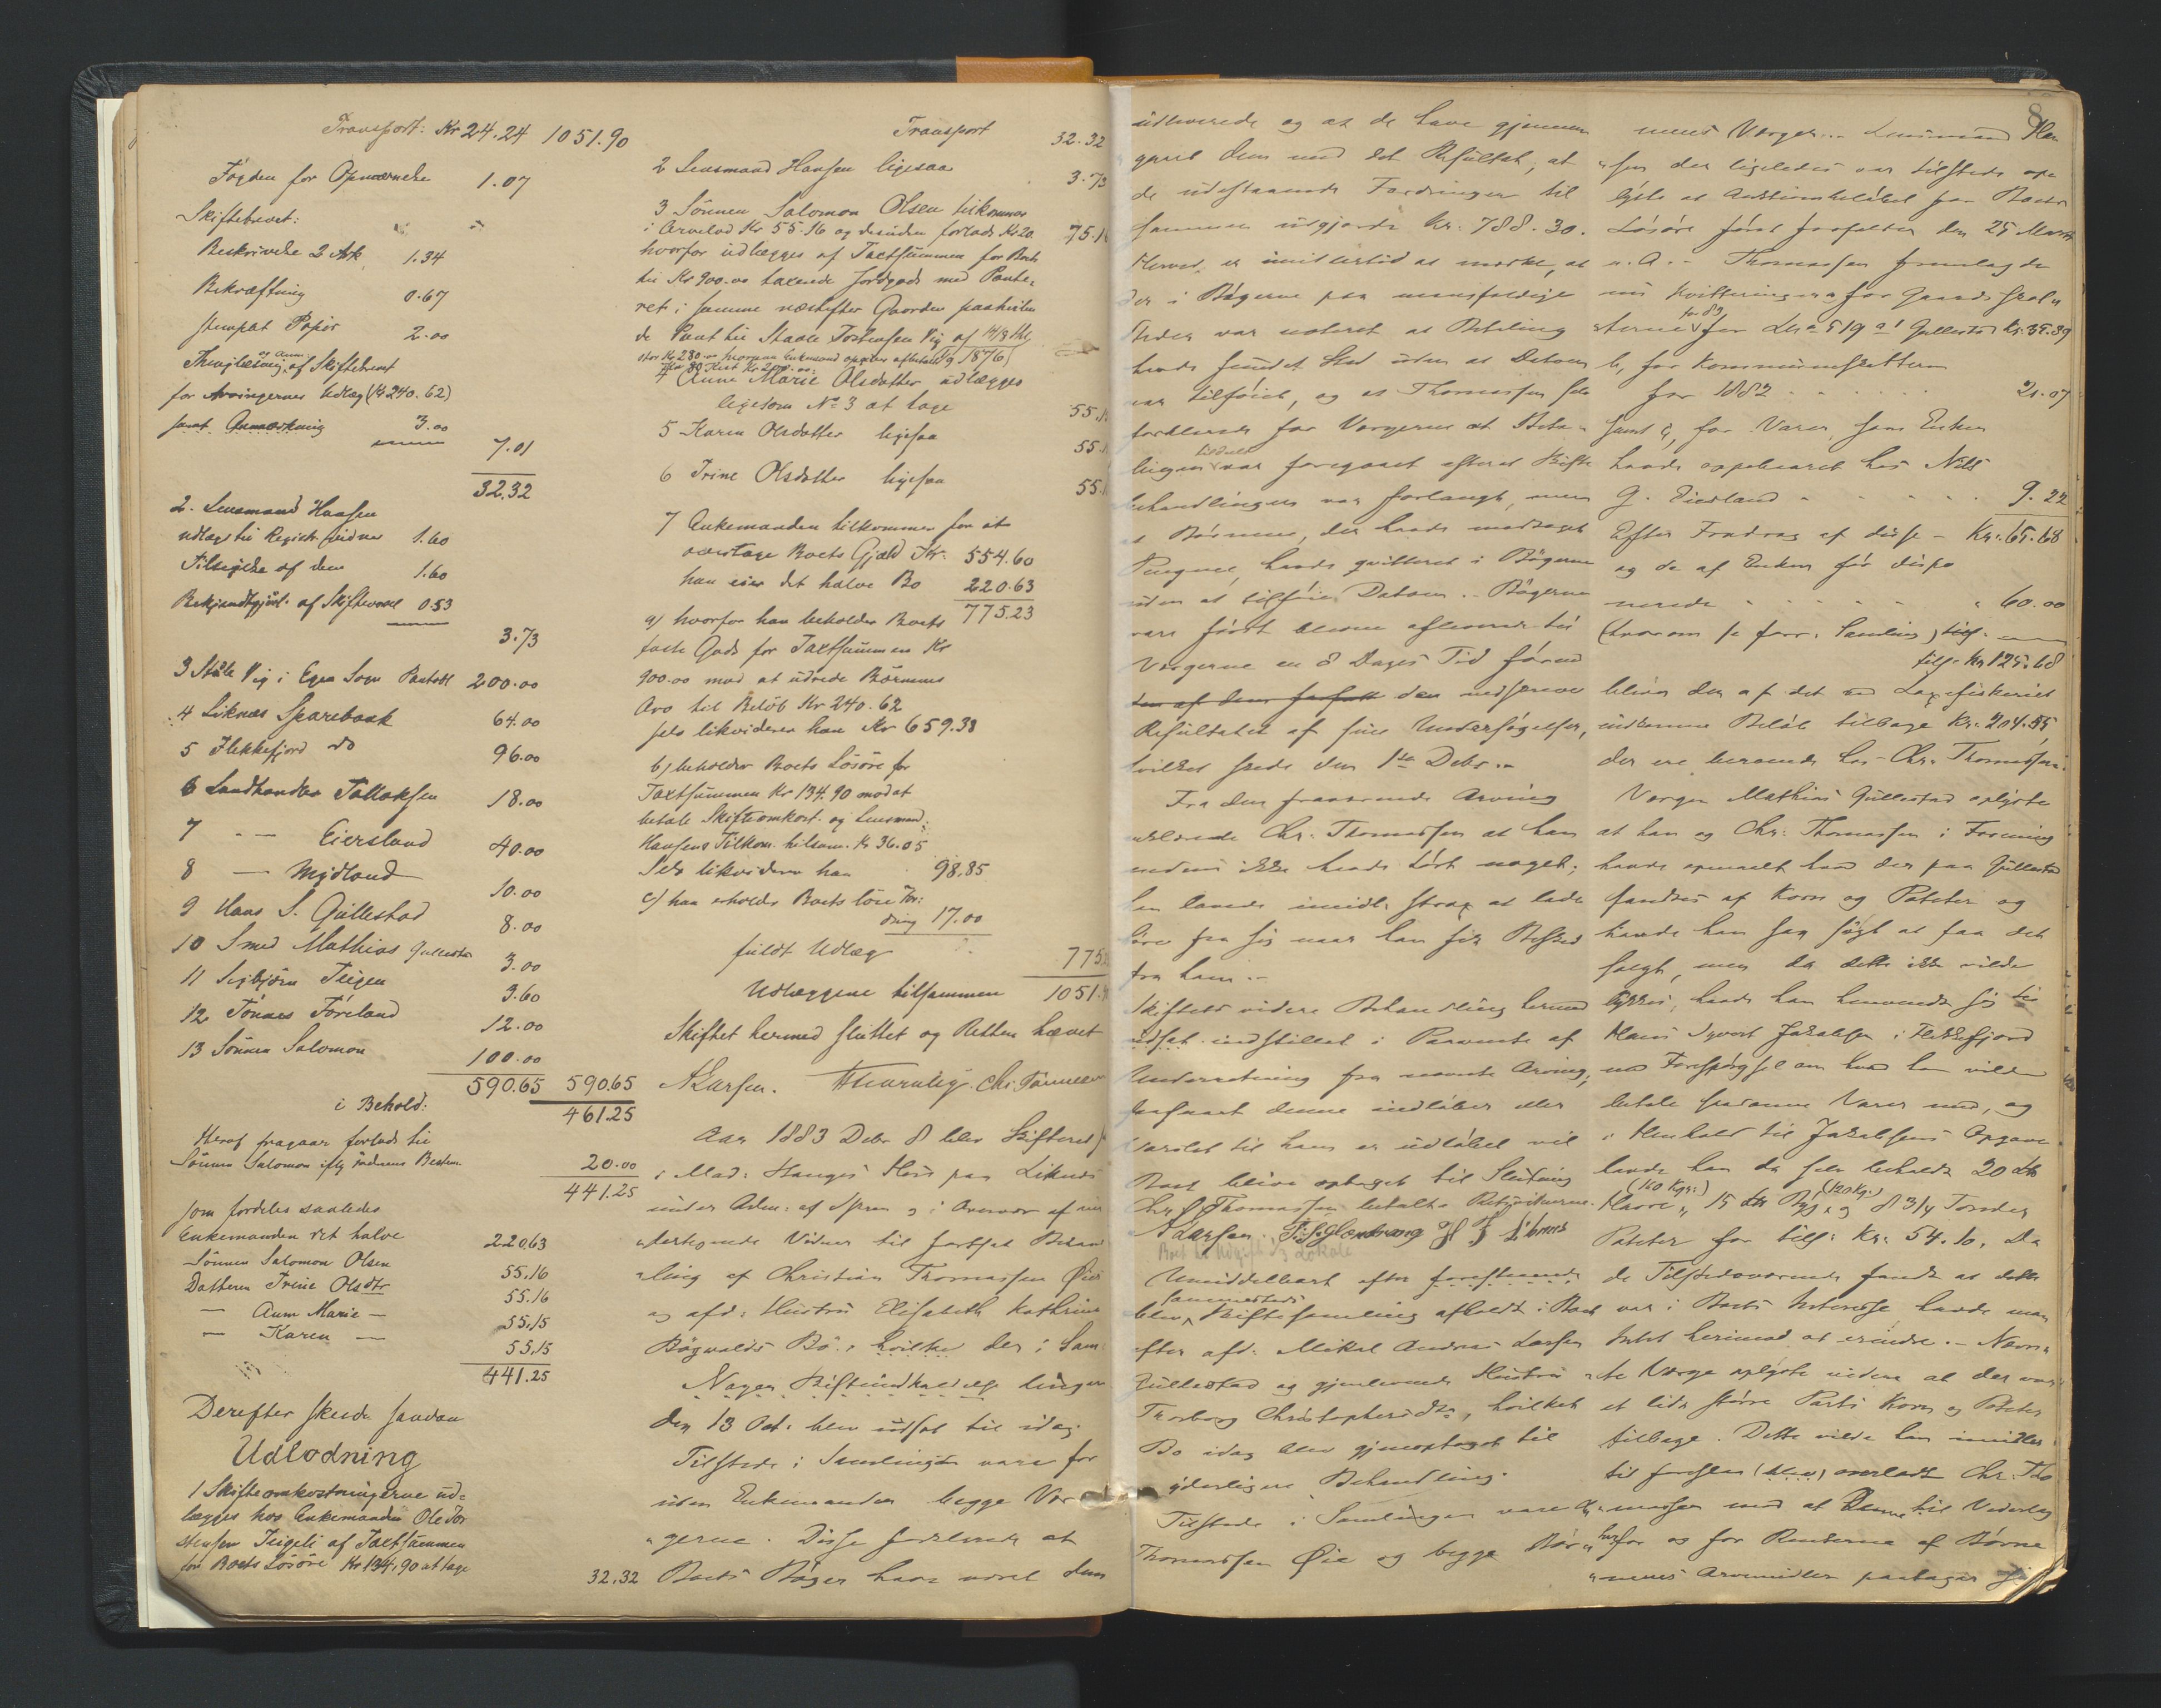 Transport: Kr 24.24 1051.90
Fogden for Opnævnelse 1.07
Skiftebrevet:
Beskrivelse 2 Ark 1.34
Bekræftning 0.67
stemplet Papir 2.00
Thinglæsning og Anm. af Skiftebrevet
for Arvingernes Udlæg (Kr 240.62)
samt Anmærkning 3.00
7.01
32.32
2. Lensmand Hansen
udlagt til Registr.vidner 1.60
Tilsigelse af dem 1.60
Bekjendtgjørl. af Skiftet 0.53
3.73
3 Ståle Vig i Egen Sogn Pantobl 200.00
4 Liknæs Sparebank 64.00
5 Flekkefjord do 96.00
6 Landhandler Tollaksen 18.00
7 - - Eiersland 40.00
8 - Mydland 10.00
9 Hans S. Gullestad 8.00
10 Smed Mathias Gullestad 3.00
11 Sigbjørn Teigen 3.60
12 Tønnes Føreland 12.00
13 Sønnen Salomon 100.00
590.65 590.65
i Behold: 461.25
Heraf fragaar forlods til
Sønnen Salomon iflg Bestem. 20.00
441.25
som fordeles saaledes
Enkemanden det halve 220.63
Sønnen Salomon Olsen 55.16
Datteren Trine Olsdtr 55.16
— Anne Marie — 55.15
— Karen — 55.15
441.25
Derefter skede saadan
Udlodning
1 Skifteomkostningerne ud-
lægges hos Enkemanden Ole Tor
stensen Teigen af Taxtsummen
for Boets Løsøre Kr 134.90 at tage 32.32
Transport 32.32
2 Lensmand Hansen ligesaa 3.73
3 Sønnen Salomon Olsen tilkommer
i Arvelod Kr 55.16 og desuden forlods Kr 20 75.1
hvorfor udlægges af Taxtsummen for Boets
til Kr 900.00 taxerede Jordgods med Pante-
ret i samme næstefter Gaarden paahvilen
de Pant til Staale Torstensen Vig af 14/3 thl
4 Anne Marie Olsdatter udlægges
ligesom No 3 at tage 55.1
5 Karen Olsdatter ligesaa 55.
6 Trine Olsdatter ligesaa 55.
7 Enkemanden tilkommer for at
overtage Boets Gjæld Kr. 554.60
han eier det halve Bo 220.63
775.23
a) hvorfor han beholder Boets
faste Gods for Taxtsummen Kr
900.00 mod at udrede Børnenes
Arv til Beløb Kr 240.62
selv likviderer han Kr 659.38
b) beholder Boets Løsøre for
Taxtsummen Kr 134.90 mod at
betale Skifteomkost. og Lensmand
Hansens Tilkom. tilsam. Kr 36.05
Selv likviderer han 98.85
c) han erholder Boets løse For-
dring 17.00
fuldt Udlæg 775
Udlæggene tilsammen 1051.
Skiftet hermed sluttet og Retten hævet
ALarsen. Chr. Tønnesen
Aar 1883 Debr 8 blev Skifteret
i Mad: Hanges Hus paa Liknæs
under Adm: af Spren og i Overvær af un
dertegnede Vidner til fortsat Behand
ling af Christian Thomassen Øie
og afd: Hustru Elisabeth Kathrine
Bøgwalds Bo, hvilke der i Sam
Nogen Skifteindkaldelse
den 13 Oct. blev udsat til idag
Tilstede i Samlingen vare for
uden Enkemanden begge Vær
gerne. Disse forklarede at
Boets Bøger have været dem
8
udleverede og at de have gjennem
gaaet dem med det Resultat, at
de udestaaende Fordringer til
sammen udgjorde Kr. 788.30.
Herved er imidlertid at mærke, at
der i Bøgerne paa mangfoldige
Steder var noteret at Betaling
havde fundet Sted uden at Datoen
var tilføiet, og at Thomassen selv
forklarede for Værgerne at Beta-
lingen tildels var foregaaet efterat Skifte
behandlingen var forlangt, men
at Børnene, der havde modtaget
Pengene, havde qvitteret i Bøgerne
uden at tilføie Datoen. Bøgerne
vare først blevne afleverede til
Værgerne en 8 Dages Tid førend
den nedskrevne
Resultatet af sine Undersøgelser,
hvilket skede den 1ste Debr.
Fra den fraværende Arving
erklærede Chr: Thomassen at han
endnu ikke havde hørt noget;
han lovede imidl. strax at lade
høre fra sig naar han fik Besked
fra ham.
Skiftets videre Behandling hermed
udsat indstillet i Paavente af
Underretning fra nævnte Arving,
saasnart denne indløber eller
Varslet til ham er udløbet vil
Boet blive optaget til Slutning
Chr Thomassen betalte Retsvidnerne.
ALarsen
Umiddelbart efter foregaaende
blev sammesteds Skiftesamling afholdt i Boet
efter afd. Mikal Andreas Larsen
Gullestad og gjenlevende Hustru
Thorborg Christophersdtr, hvilket
Bo idag blev gjenoptaget til
yderligere Behandling.
Tilstede i Samlingen vare
Thomassen Øie og begge Bør
nenes Værger. Lensmand Han
sen der ligeledes var tilstede op
lyste at Auktionsbeløbet for Boets
Løsøre først forfalder den 25 Marts
n.A. - Thomassen fremlagde
nu Kvitteringer a, for Gaardsskat
terne for 83 for No 519 a1 Gullestad Kr. 35.39
b, for Kommuneskatten
for 1882 21.07
samt c, for Varer, som Enken
havde oppebaaret hos Nils
G. Eiesland 9.22
Efter Fradrag af disse - Kr. 65.68
og de af Enken før dispo
nerede 60.00
(hvorom se forr. Samling)
tils. Kr 125.68
bliver der af det ved Laxefiskeriet
indkomne Beløb tilbage Kr. 204.55,
der ere beroende hos Chr. Thomassen.
Værgen Mathias Gullestad oplyste
at han og Chr: Thomassen i Forening
havde opmaalt hvad der paa Gullestad
fandtes af Korn og Poteter og
havde han saa søgt at faa det
solgt, men da dette ikke vilde
lykkes, havde han henvendt sig til
Hans Syvert Jakobsen i Flekkefjord
med Forespørgsel om hvad han vilde
betale saadanne Varer med, og
i Henhold til Jakobsens Opgave
havde han da selv beholdt 20
Havre (160 Kgr:), 15 Byg (120 Kg.) og 8 3/4 Tønder
Poteter for tils: Kr. 54.10. Da
de Tilstedeværende fandt at dette
var i Boets Interesse havde man
Intet herimod at erindre. - Nævn-
te Værge oplyste videre at der var
et lidt større Parti Korn og Poteter
tilbage. Dette vilde han imidler
tid overladt Chr. Tho
massen mod at Denne til Vederlag
herfor og for Renterne af Børne
nenes Arvemidler paatager sig